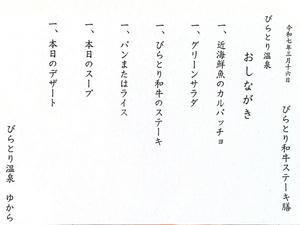 令和七年三月十六日
びらとり温泉
びらとり和牛ステーキ膳
おしながき
一、近海鮮魚のカルパッチョ
一、グリーンサラダ
一、びらとり和牛のステーキ
一、パンまたはライス
一、本日のスープ
一、本日のデザート
びらとり温泉 ゆから